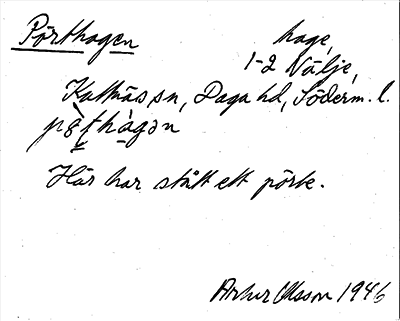 Pörthagen
hage,
1-2 Nälje,
Kattnäs sn, Daga hd, Söderm. l.
Här har stått ett pörte.
Artur Olsson 1946